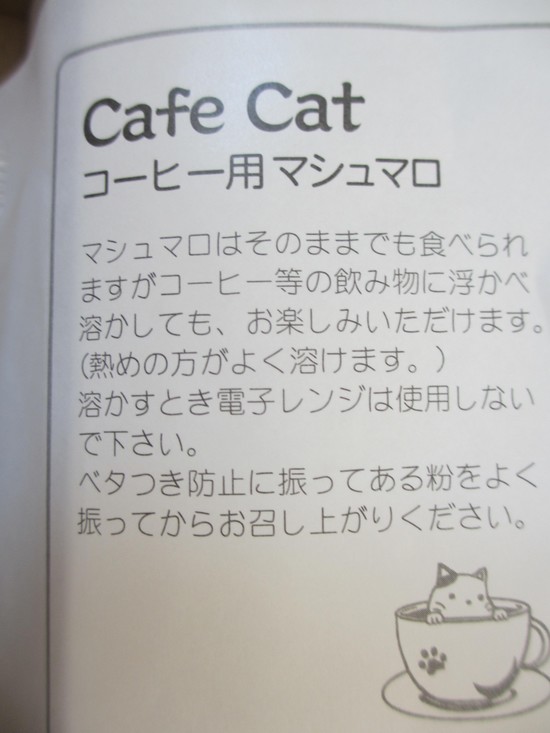 Cafe Cat
コーヒー用マシュマロ
マシュマロはそのままでも食べられ
ますがコーヒー等の飲み物に浮かべ
溶かしても、お楽しみいただけます。
(熱めの方がよく溶けます。)
溶かすとき電子レンジは使用しない
で下さい。
ベタつき防止に振ってある粉をよく
振ってからお召し上がりください。